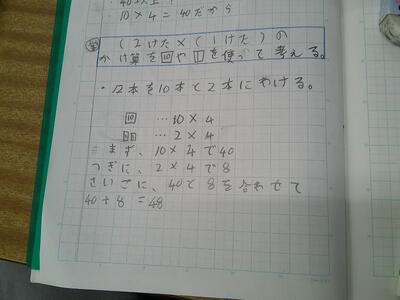 ・40以上
・10×4=40だから
(2けた×(1けた)の
かけ算を回や①を使って考える。
・12本を10本と2本にわける。
回 …10×4
…2×4
まず、10×4で40
つぎに、2×4で8
さいごに、40と8を合わせて
40+8=48